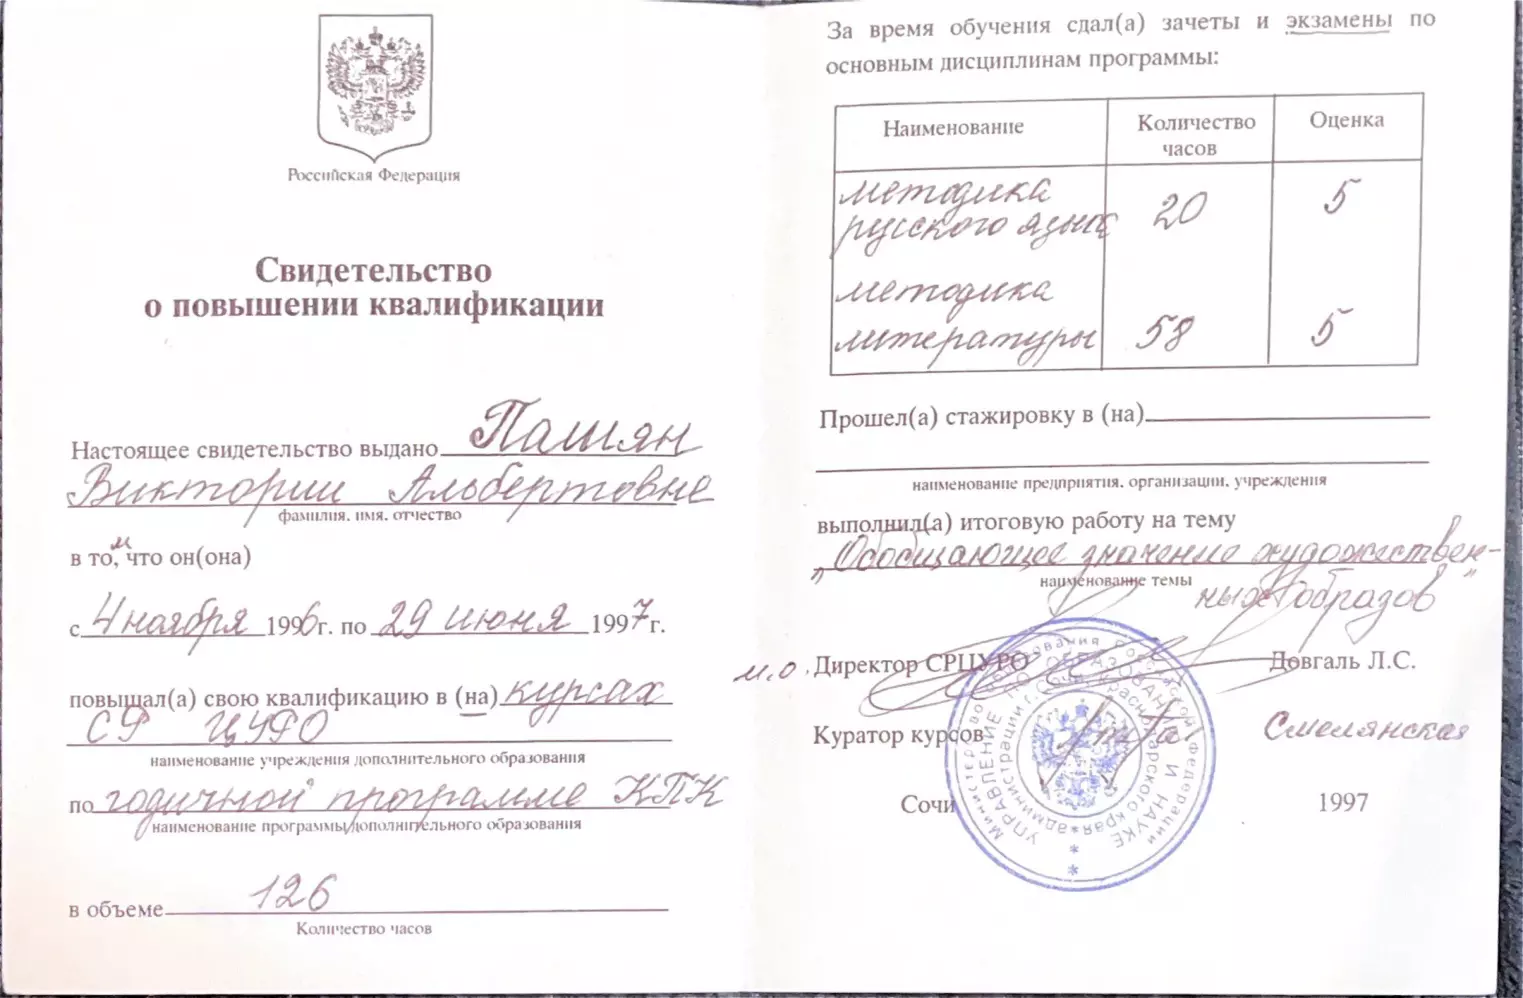 Российская Федерация
Свидетельство
о повышении квалификации
Настоящее свидетельство выдано Пашян
Виктории Альбертовне
фамилия, имя, отчество
в том, что он(она)
с 4 ноября 1996г. по 29 июня 1997г.
повышал(а) свою квалификацию в (на) курсах
СР ЦУРО
наименование учреждения дополнительного образования
по годичной программе КПК
наименование программы дополнительного образования
в объеме 126
Количество часов
За время обучения сдал(а) зачеты и экзамены по
основным дисциплинам программы:
Наименование Количество часов Оценка
методика
русского языка 20 5
методика
литературы 58 5
Прошел(а) стажировку в (на)
наименование предприятия, организации, учреждения
выполнил(а) итоговую работу на тему
„Обобщающее значение художествен-
наименование темы
ных образов"
и.о. Директор СРЦУРО Довгаль Л.С.
Куратор курсов Смелянская
Сочи 1997
Министерство образования Российской Федерации
УПРАВЛЕНИЕ ПО ОБРАЗОВАНИЮ И НАУКЕ
администрации г. Сочи Краснодарского края